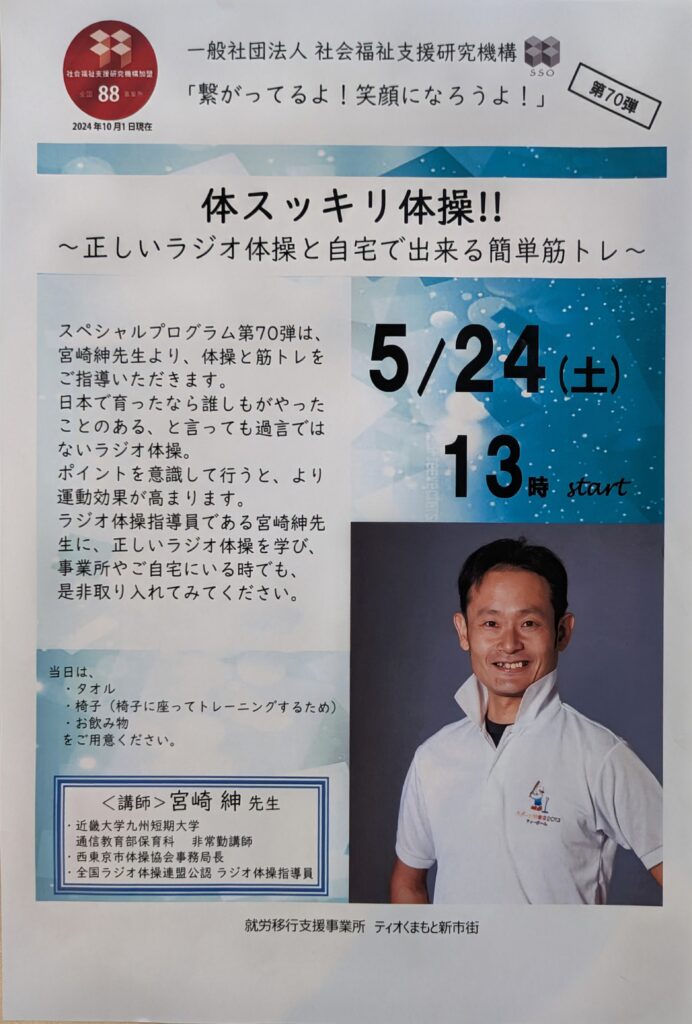 社会福祉支援研究機構加盟
全国 88 事業所
2024年10月1日現在
一般社団法人 社会福祉支援研究機構
SSO
「繋がってるよ！笑顔になろうよ！」
第70弾
体スッキリ体操!!
～正しいラジオ体操と自宅で出来る簡単筋トレ～
スペシャルプログラム第70弾は、
宮崎紳先生より、体操と筋トレを
ご指導いただきます。
日本で育ったなら誰しもがやった
ことのある、と言っても過言では
ないラジオ体操。
ポイントを意識して行うと、より
運動効果が高まります。
ラジオ体操指導員である宮崎紳先
生に、正しいラジオ体操を学び、
事業所やご自宅にいる時でも、
是非取り入れてみてください。
5/24(土)
13時 start
当日は、
・タオル
・椅子（椅子に座ってトレーニングするため）
・お飲み物
をご用意ください。
＜講師＞宮崎 紳 先生
・近畿大学九州短期大学
通信教育部保育科 非常勤講師
・西東京市体操協会事務局長
・全国ラジオ体操連盟公認 ラジオ体操指導員
ティーボール
就労移行支援事業所 ティオくまもと新市街